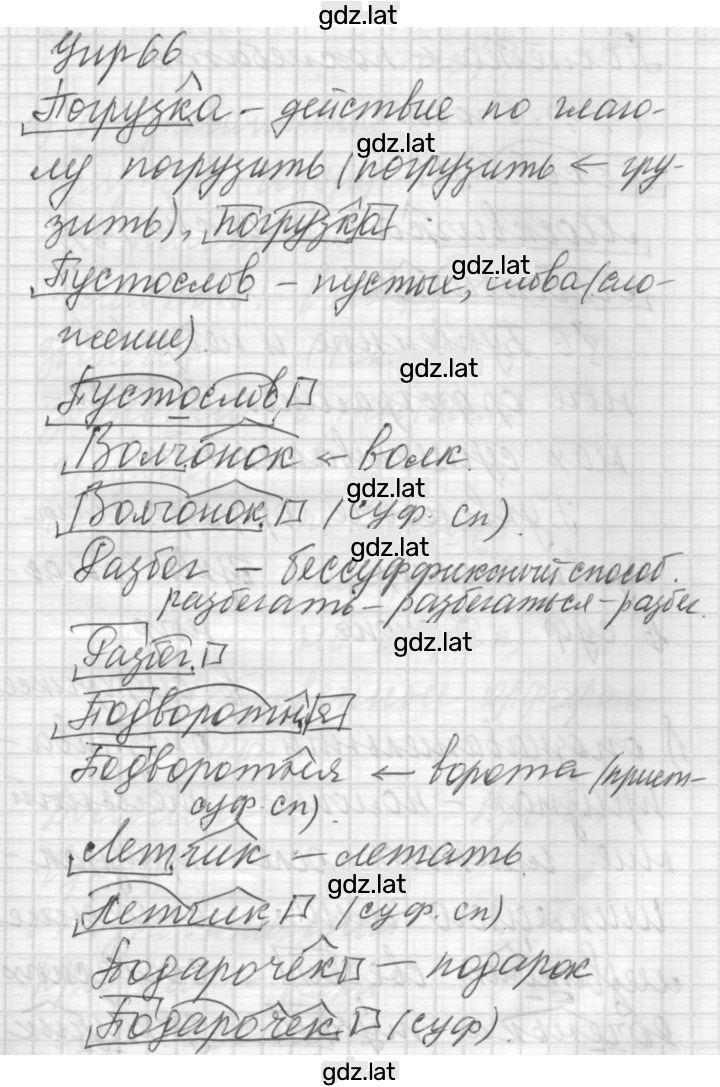 gdz.lat
Упр66
Погрузка – действие по глаго-
gdz.lat
лу погрузить (погрузить ← гру-
зить), погрузка
gdz.lat
Пустослов – пустые, слова (сло-
жение).
gdz.lat
Пустослов,
Волчонок ← волк.
gdz.lat
Волчонок, (суф. сп).
gdz.lat
Разбег – бессуффиксный способ.
разбегать – разбегаться – разбег.
gdz.lat
Разбег,
Подворотня
Подворотня ← ворота (прист-
суф. сп).
Летчик – летать.
gdz.lat
Летчик, (суф. сп)
Подарочек – подарок
Подарочек. (суф).
gdz.lat